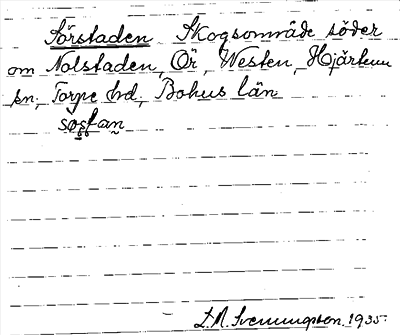 Sörstaden Skogsområde söder
om Nolstaden, Ör, Westen, Hjärtum
sn, Torpe hd, Bohus län
L. M. Svenungsson 1935